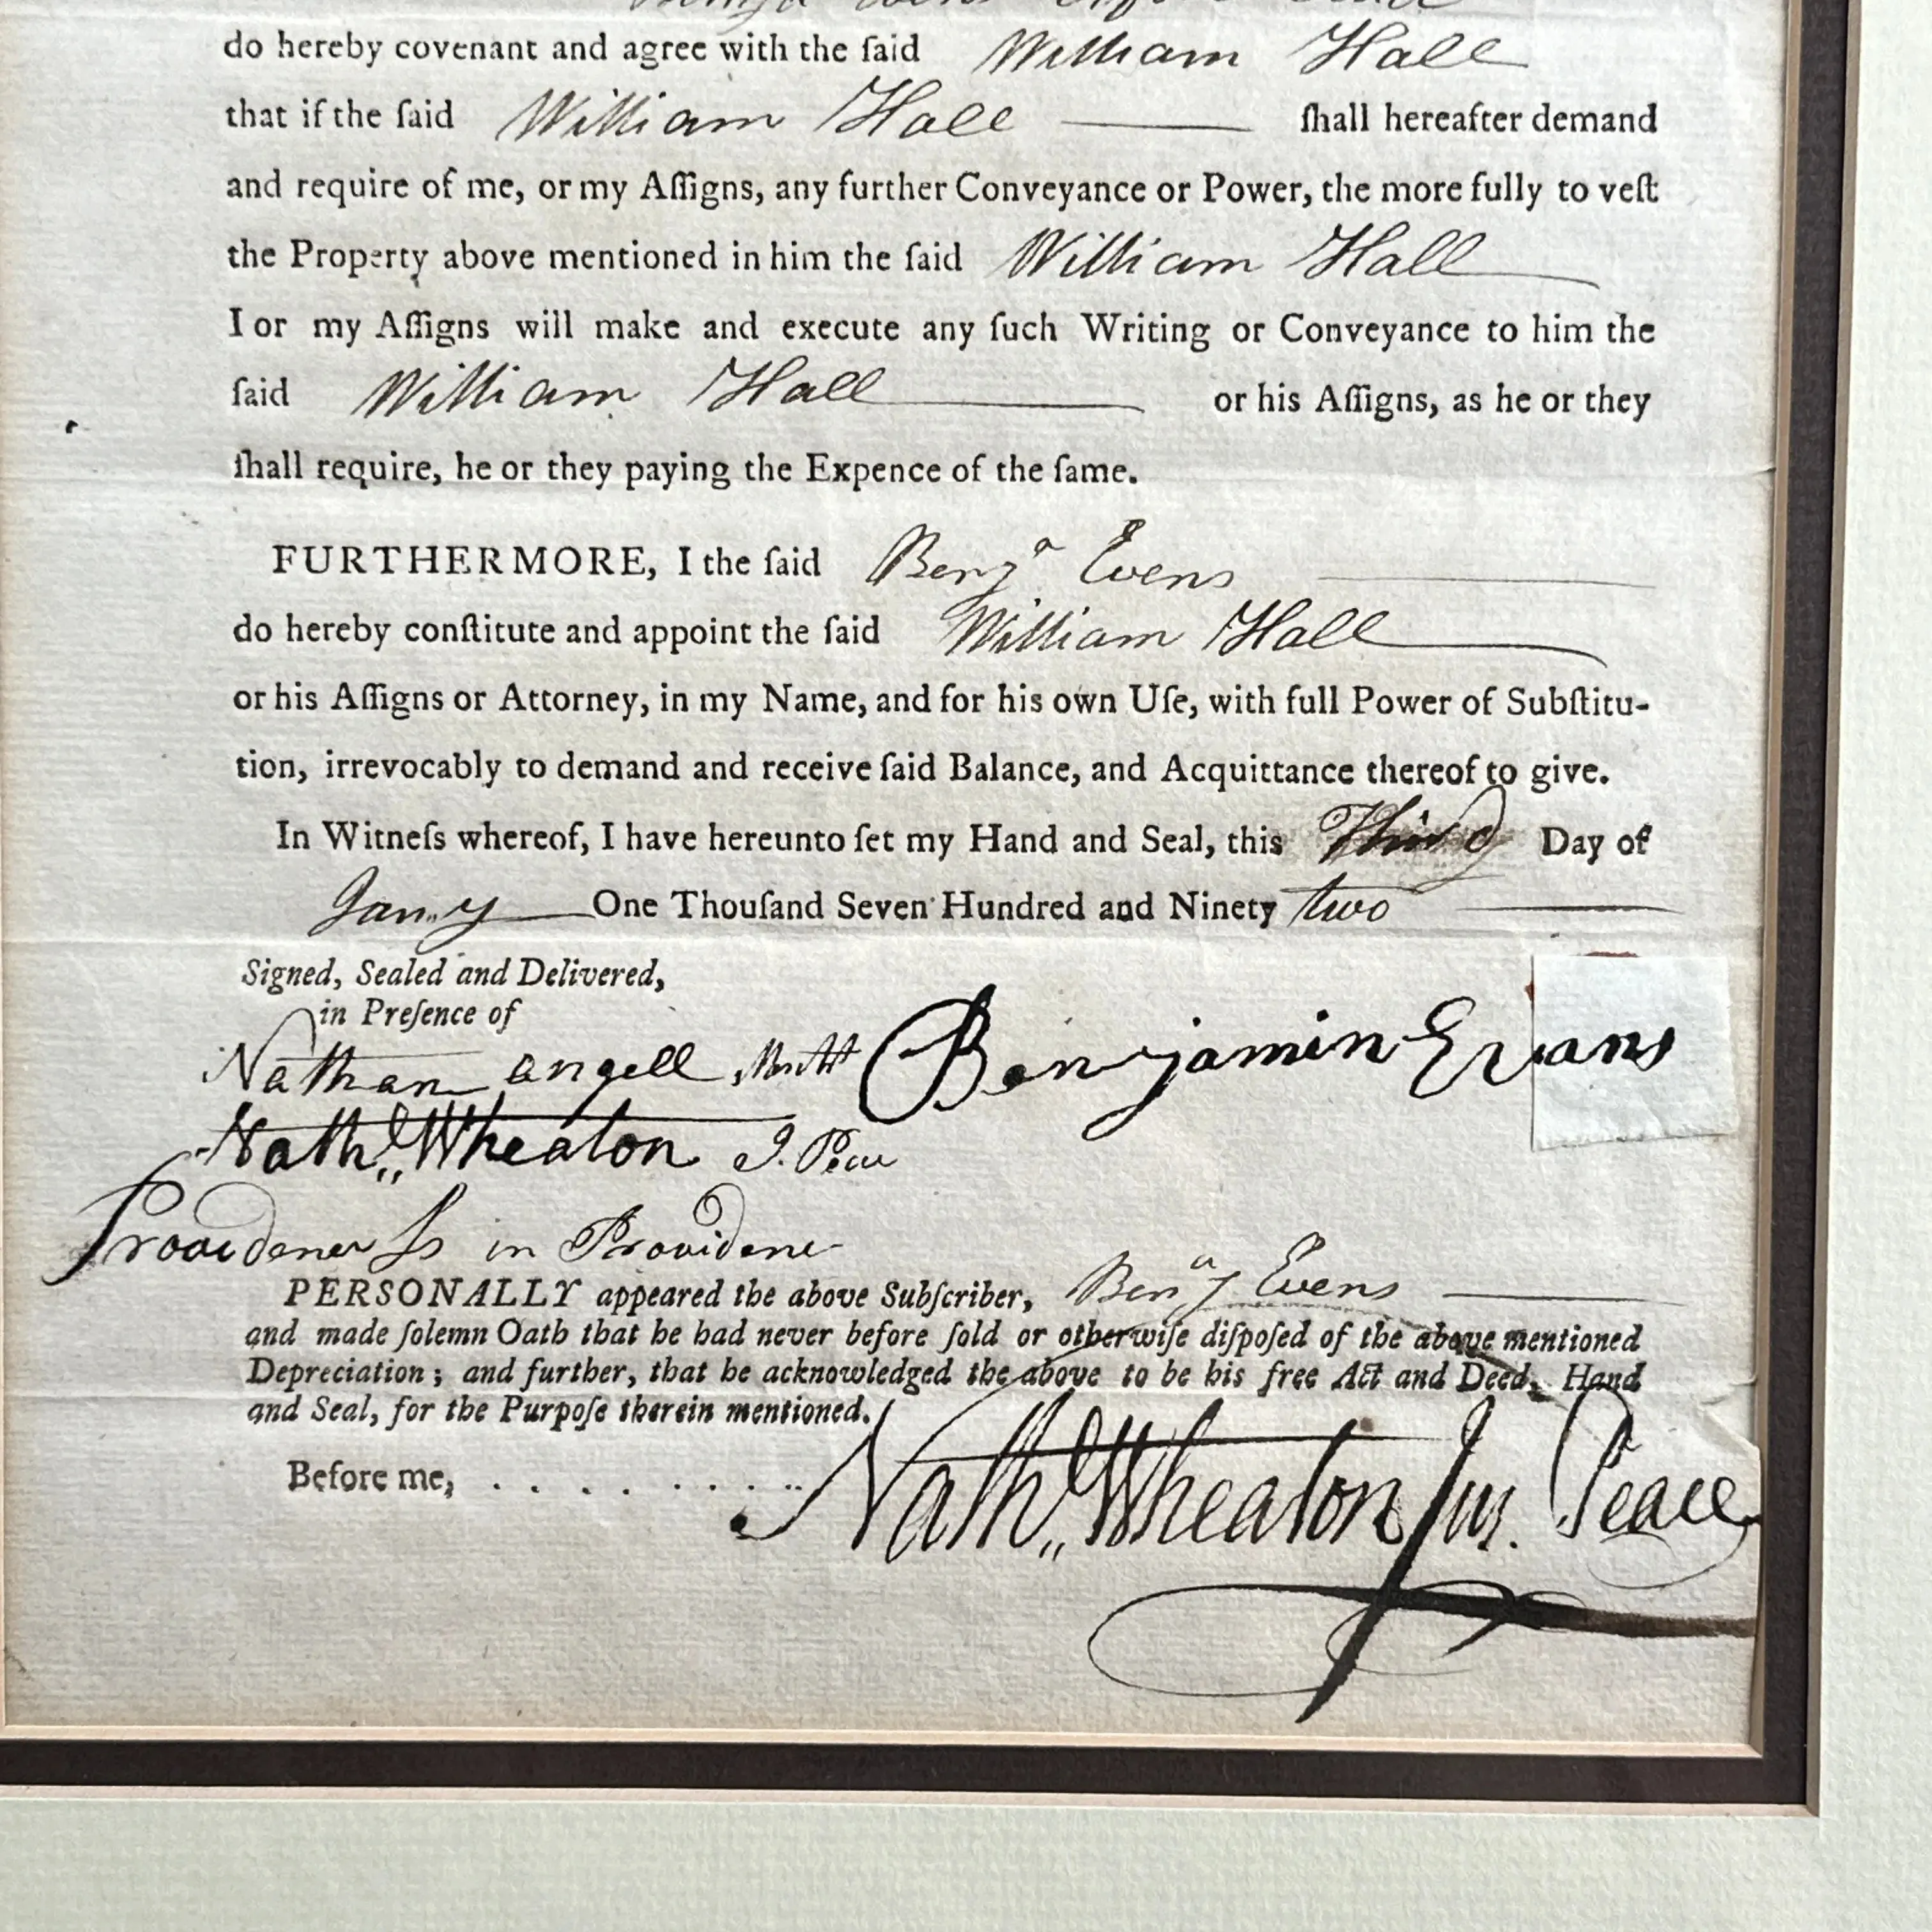 do hereby covenant and agree with the ſaid William Hall
that if the ſaid William Hall ſhall hereafter demand
and require of me, or my Aſſigns, any further Conveyance or Power, the more fully to veſt
the Property above mentioned in him the ſaid William Hall
I or my Aſſigns will make and execute any ſuch Writing or Conveyance to him the
ſaid William Hall or his Aſſigns, as he or they
ſhall require, he or they paying the Expence of the ſame.
FURTHERMORE, I the ſaid Benjª Evens
do hereby conſtitute and appoint the ſaid William Hall
or his Aſſigns or Attorney, in my Name, and for his own Uſe, with full Power of Subſtitu-
tion, irrevocably to demand and receive ſaid Balance, and Acquittance thereof to give.
In Witneſs whereof, I have hereunto ſet my Hand and Seal, this Third Day of
Jan,,y One Thouſand Seven Hundred and Ninety two
Signed, Sealed and Delivered,
in Preſence of
Nathan angell
Benjamin Evans
Nathl,, Wheaton J. Peace
Providence Ss in Providence
PERSONALLY appeared the above Subſcriber, Benjª Evens
and made ſolemn Oath that he had never before ſold or otherwiſe diſpoſed of the above mentioned
Depreciation; and further, that he acknowledged the above to be his free Act and Deed, Hand
and Seal, for the Purpoſe therein mentioned.
Before me, . . . . . . . . .
Nathl,, Wheaton Jus. Peace